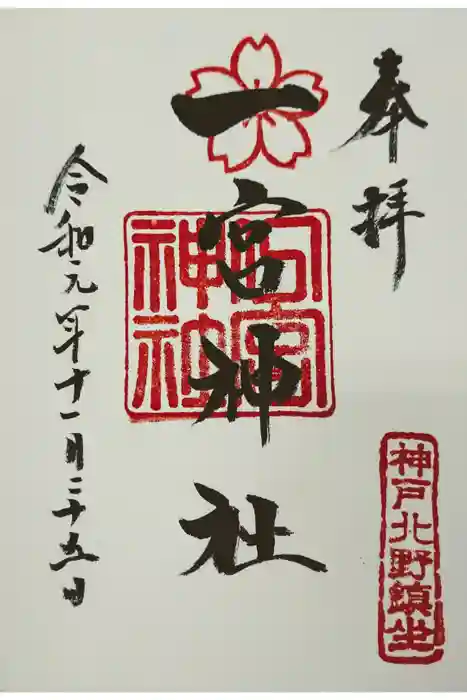 奉拝
神戸北野鎮坐
一宮神社
一宮
神社
令和元年十一月二十五日